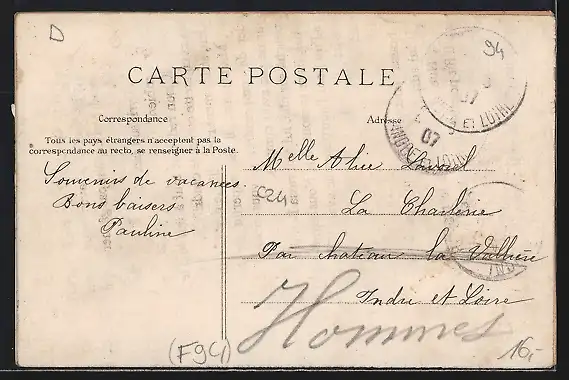 D
94
CARTE POSTALE
Correspondance
Adresse
Tous les pays étrangers n'acceptent pas la
correspondance au recto, se renseigner à la Poste.
Souvenirs de vacances
Bons baisers
Pauline
C24
Melle Alice
La Charlerie
Par chateau la Vallière
Indre et Loire
Hommes
(F94)
16,-
07
ET LOIRE
07
INDRE ET LOIRE